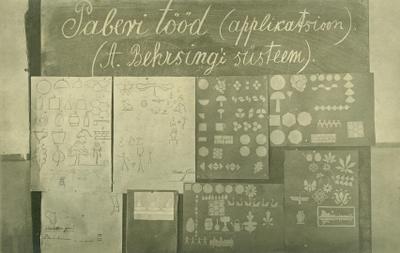 Paberi tööd (applikatsioon).
(A. Behrsing'i süsteem).